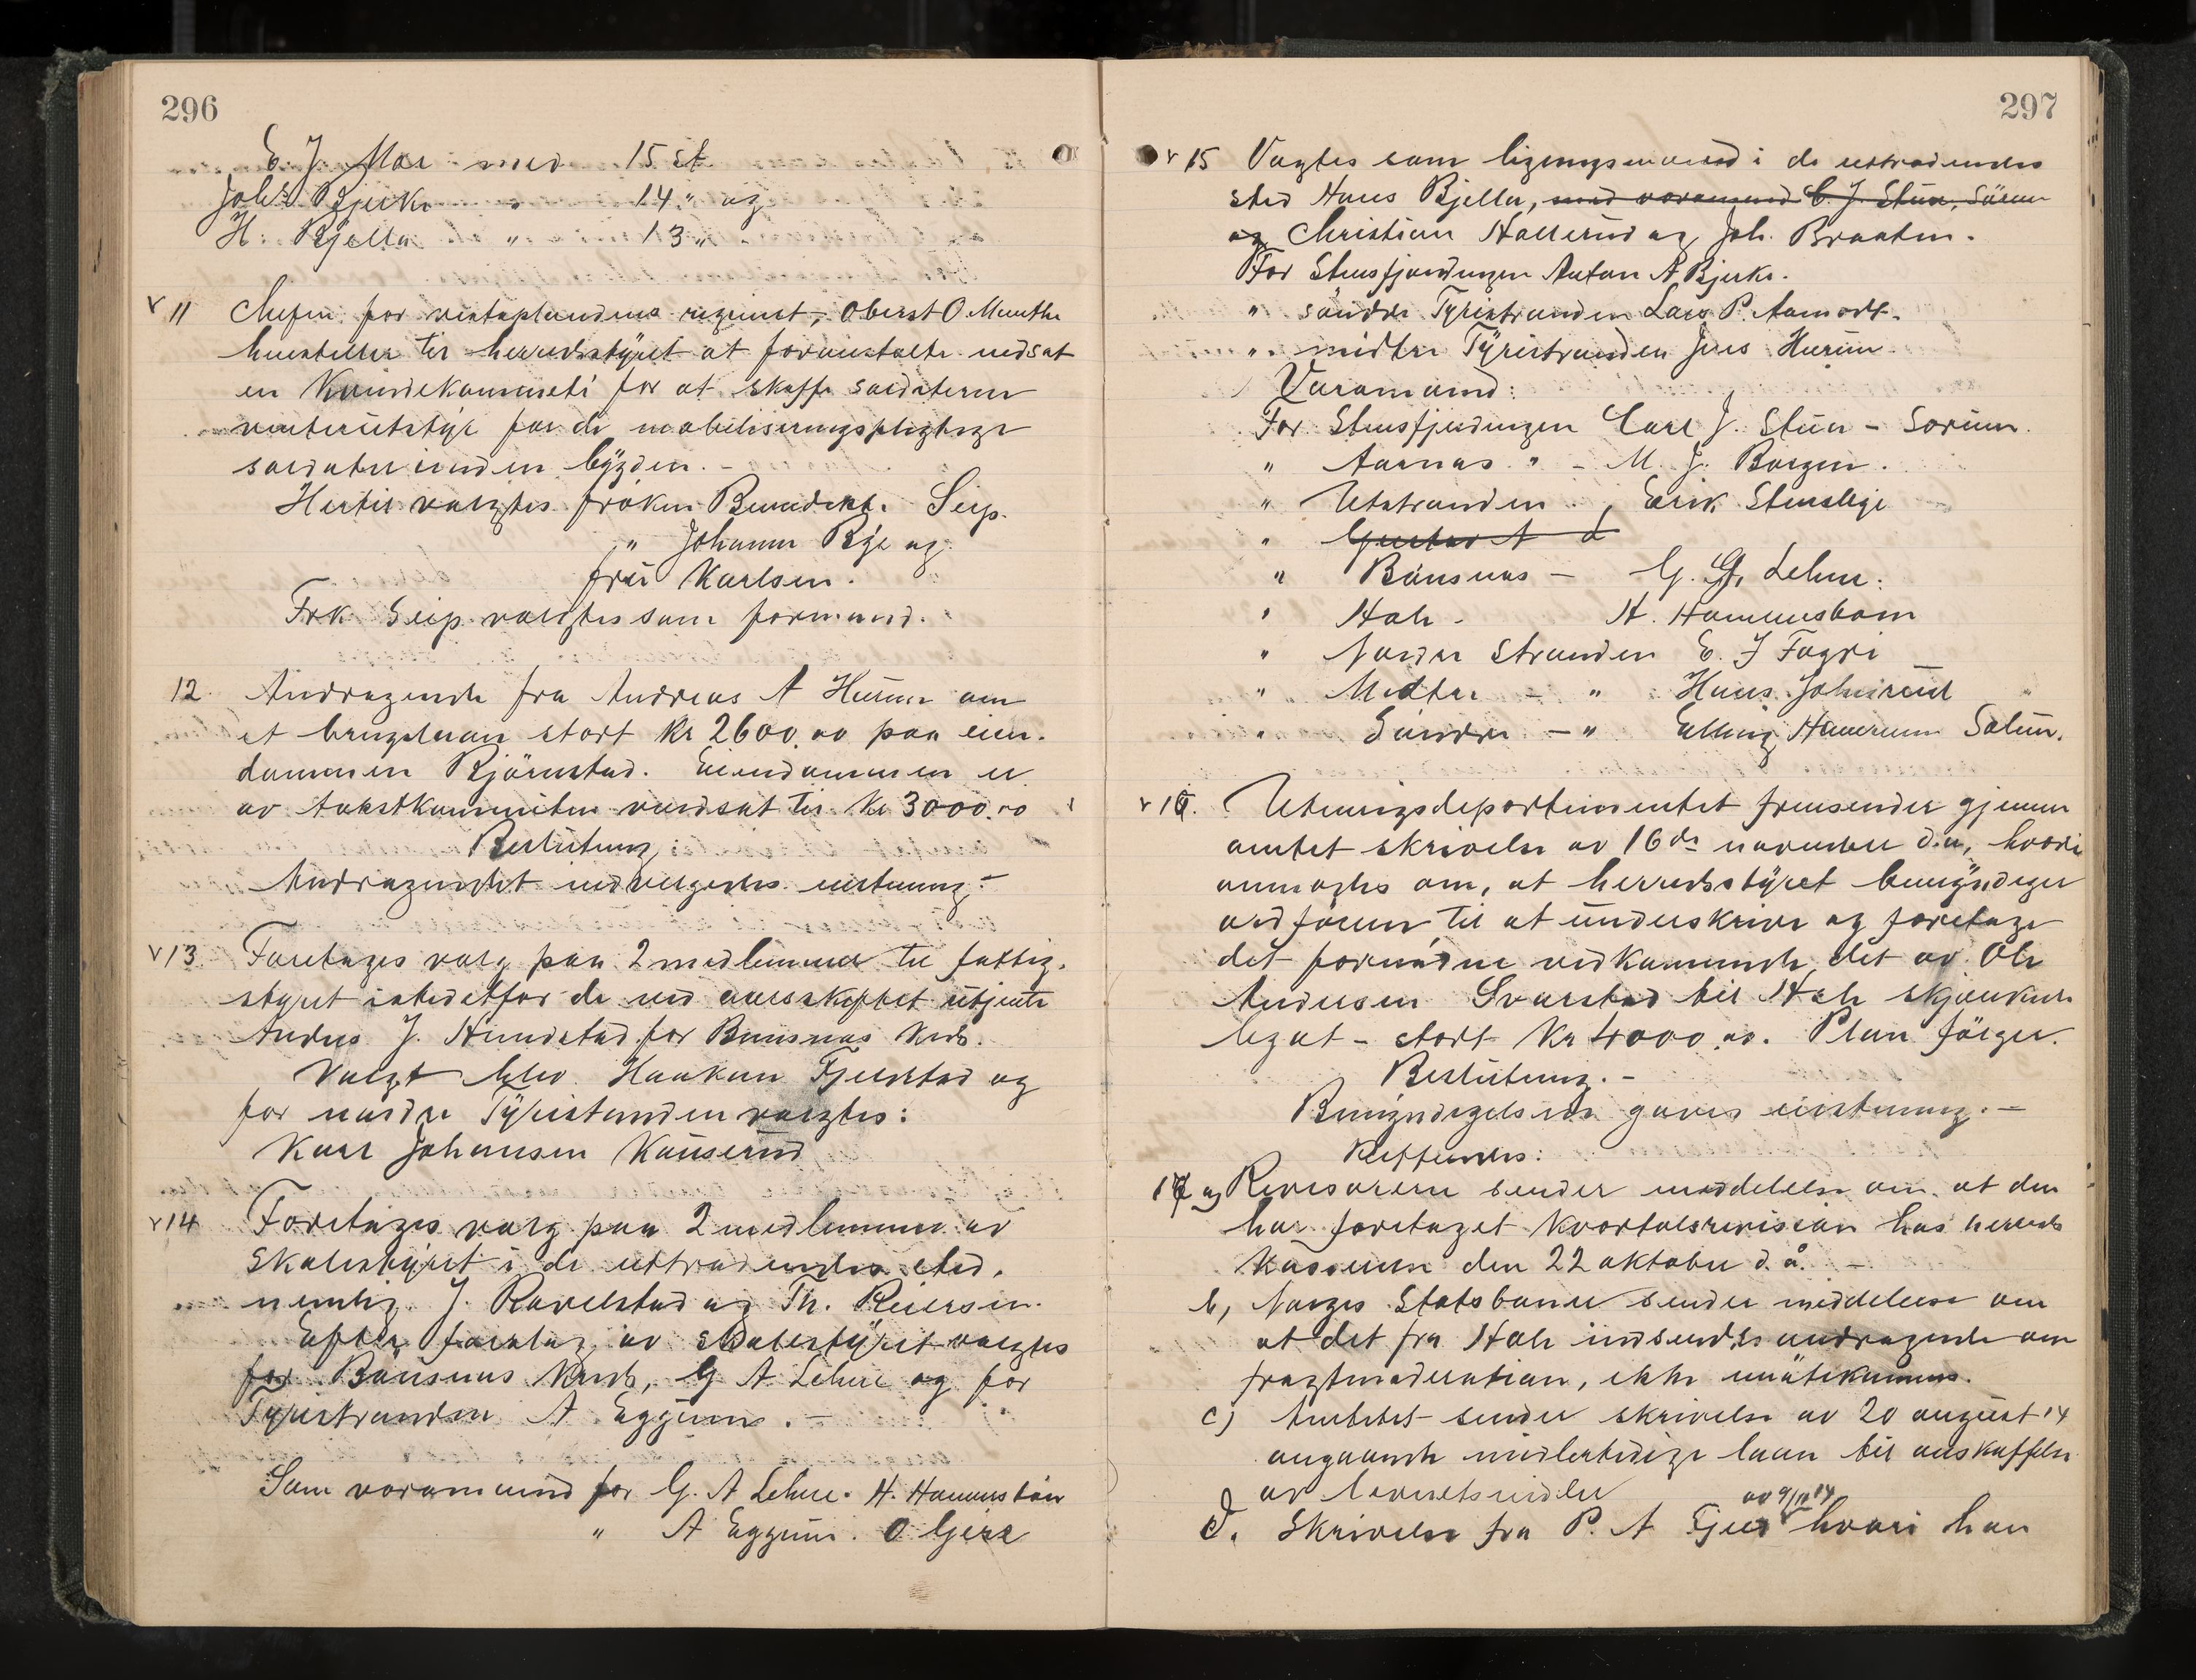 296
E. J. Moe med 15 st
Johs Bjerke " 14 " og
H. Bjella " 13 "
v 11 Chefen for vestoplandenes regiment, Oberst O. Munthe
henstiller til herredsstyret at foranstalte nedsat
en Kvindekommité for at skaffe soldaterne
vinterutstyr for de mobiliseringspligtige
soldater inden bygden. -
Hertil valgtes frøken Benedikte Seip.
" Johanne Bye og
fru Karlsen.
Frk. Seip valgtes som formand.
12. Andragende fra Andreas A Hurum om
et brugslaan stort kr 2600.00 paa eien-
dommen Bjørnstad. Eiendommen er
av takstkommiten verdsat til kr 3000.00
Beslutning:
Andragendet indvilgedes enstemmig. -
v 13 Foretages valg paa 2 medlemmer til fattig-
styret istedetfor de ved aarsskiftet uttjente
Anders J. Hundstad for Bønsnæs kreds.
Valgt blev Haakon Fjeldstad og
for nordre Tyristranden valgtes:
Karl Johansen Kauserud
v 14 Foretages valg paa 2 medlemmer av
Skolestyret i de uttrædendes sted,
nemlig J. Ravelstad og Th. Reiersen.
Efter forslag av skolestyret valgtes
for Bønsnæs kreds, G A Lehne og for
Tyristranden A Eggum. -
Som varamænd for G. A Lehne. H. Hammesbøn
" A Eggum. O Gjese
297
v 15 Valgtes som ligningsmænd i de uttrædendes
sted Hans Bjella, med varamænd C. J. Stun, Sørum
og Christian Hallerud og Joh. Braaten.
For Stensfjerdingen Anton A Bjerke.
" søndre Tyristranden Lars P. Aamodt.
" midtre Tyristranden Jens Hurum.
Varamænd:
For Stensfjerdingen Carl J. Stun - Sørum.
" Aarnes " - M. J. Borgen.
" Utstranden , Erik Stensleje
" Gustav A
" Bønsnæs - G. G. Lehne.
" Hole - H. Hammesbøn
" Nordre Stranden E. J Fagri
" Midtre - " Hans Johnsrud
" Søndre - " Elling Hæverum Solum.
v 16. Utenrigsdepartementet fremsender gjennem
amtet skrivelse av 16de november d.a, hvori
anmodes om, at herredsstyret bemyndiger
ordføreren til at underskrive og foretage
det fornødne vedkommende det av Ole
Andersen Svarstad til Hole skjænkede
legat - stort kr 4000.00. Plan følger.
Beslutning. -
Bemyndigelsen gaves enstemmig. -
Refferertes:
17 a) Revisorerne sender meddelelse om at den
har foretaget kvartalsrevision hos herreds
kassereren den 22 oktober d. å. -
b, Norges Statsbaner sender meddelelse om
at det fra Hole indsendte andragende om
fragtmoderation, ikke imøtekommes.
c) Amtet sender skrivelse av 20 august 14
angaaende midlertidige laan til anskaffelse
av levnetsmidler
d. Skrivelse fra P. A Fjeld av 9/11 14 hvori han